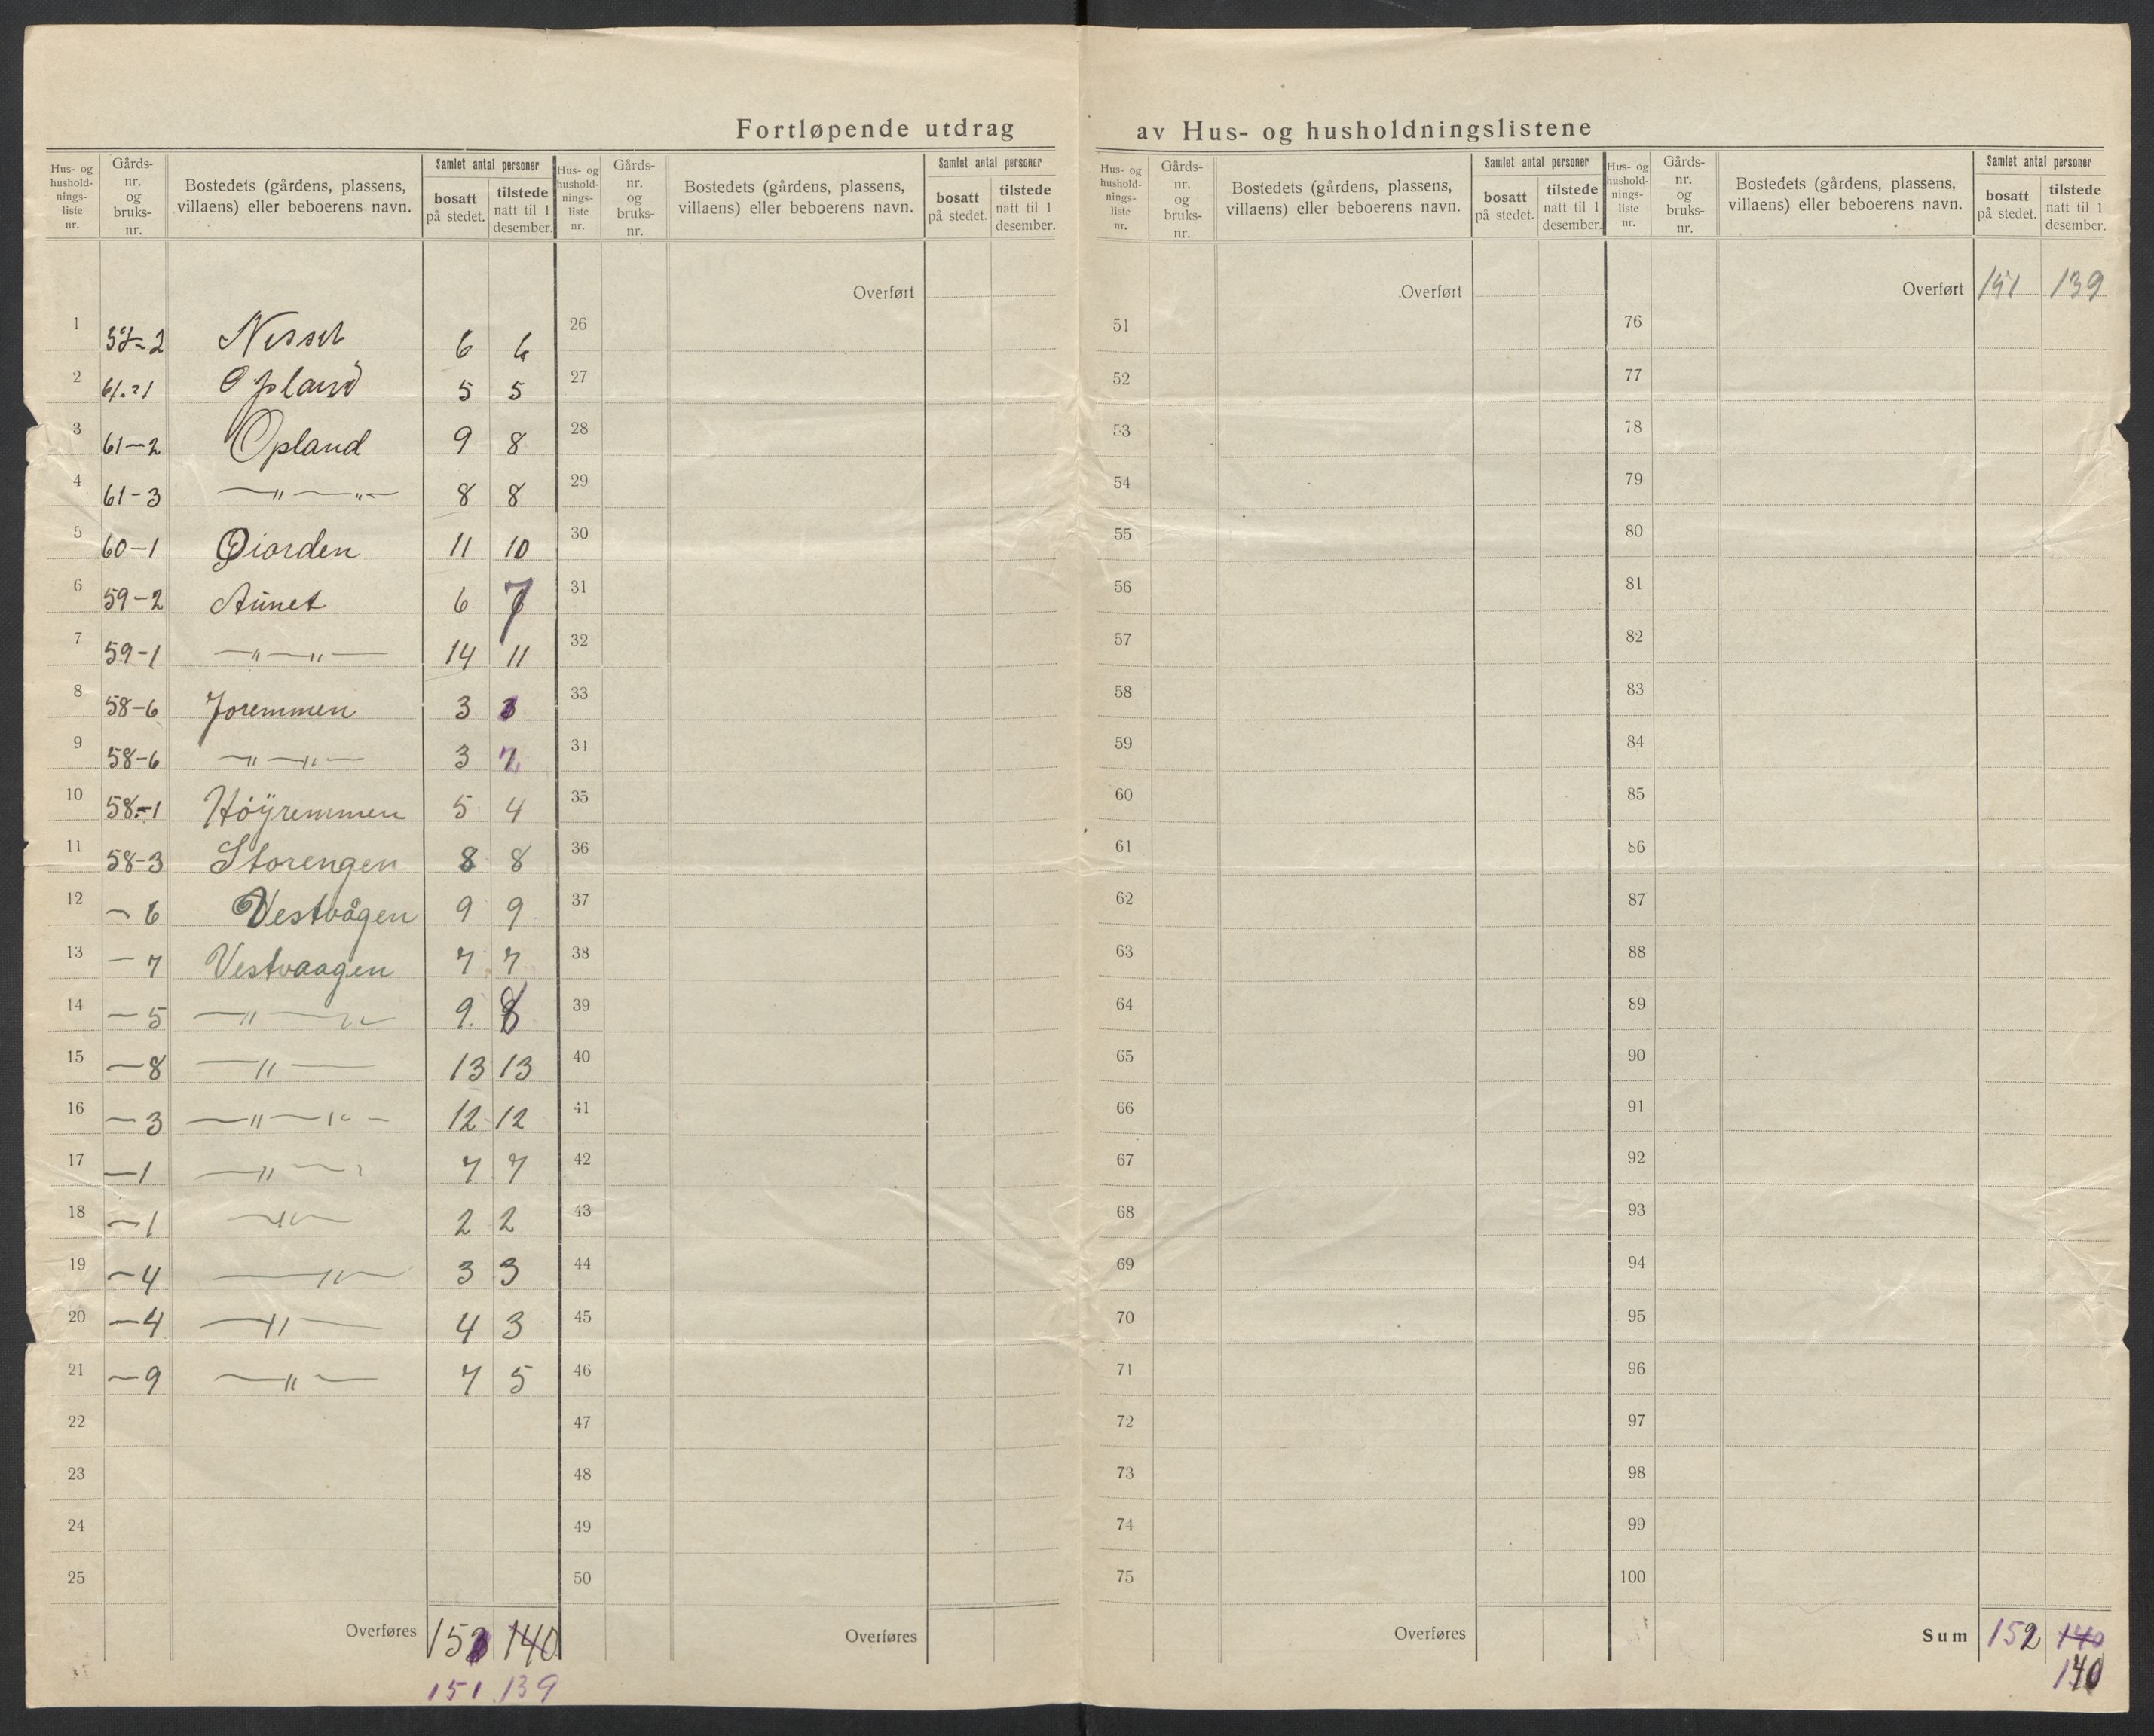 Fortløpende utdrag av Hus- og husholdningslistene
Hus- og husholdningsliste nr. | Gårdsnr. og bruksnr. | Bostedets (gårdens, plassens, villaens) eller beboerens navn. | Samlet antal personer | bosatt på stedet. | tilstede natt til 1 desember.
Hus- og husholdningsliste nr. | Gårdsnr. og bruksnr. | Bostedets (gårdens, plassens, villaens) eller beboerens navn. | Samlet antal personer | bosatt på stedet. | tilstede natt til 1 desember.
Hus- og husholdningsliste nr. | Gårdsnr. og bruksnr. | Bostedets (gårdens, plassens, villaens) eller beboerens navn. | Samlet antal personer | bosatt på stedet. | tilstede natt til 1 desember.
Hus- og husholdningsliste nr. | Gårdsnr. og bruksnr. | Bostedets (gårdens, plassens, villaens) eller beboerens navn. | Samlet antal personer | bosatt på stedet. | tilstede natt til 1 desember.
1 Nesset 6 6
2 Opland 5 5
3 61-2 Opland 9 8
4 61-3 —"— —"— 8 8
5 60-1 Øiorden 11 10
6 59-2 Aunet 6 7
7 59-1 —"—"— 14 11
8 58-6 Joremmen 3 3
9 58-6 —"—"— 3 2
10 58-1 Höÿremmen 5 4
11 58-3 Storengen 8 8
12 — 6 Vestvågen 9 9
13 — 7 Vestvaagen 7 7
14 — 5 —"— 9. 8
15 — 8 —"— 13 13
16 — 3 —"—"— 12 12
17 — 1 —"— 7 7
18 — 1 —"— 2 2
19 — 4 —"— 3 3
20 — 4 —"— 4 3
21 — 9 —"— 7 5
22
23
24
25
Overføres 140
151 139
Overført
26
27
28
29
30
31
32
33
34
35
36
37
38
39
40
41
42
43
44
45
46
47
48
49
50
Overføres
Overført
51
52
53
54
55
56
57
58
59
60
61
62
63
64
65
66
67
68
69
70
71
72
73
74
75
Overføres
Overført 151 139
76
77
78
79
80
81
82
83
84
85
86
87
88
89
90
91
92
93
94
95
96
97
98
99
100
Sum 152 140
140